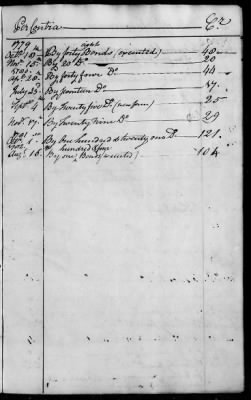 Per Contra Cr.
1779
Octr. 18. By forty eight Bonds (executed) 48
Novr. 15. By 20 Do. 20
1780
Apr. 20. By forty four Do. 44
July 25. By Do. 17.
Septr. 4 By Twenty five Do. (new form) 25
Novr. 17. By Twenty Nine Do. 29
1781
Octr. 1. By One hundred & twenty one Do. 121
1782
Augt. 16. By one hundred & four Bonds (executed) 104